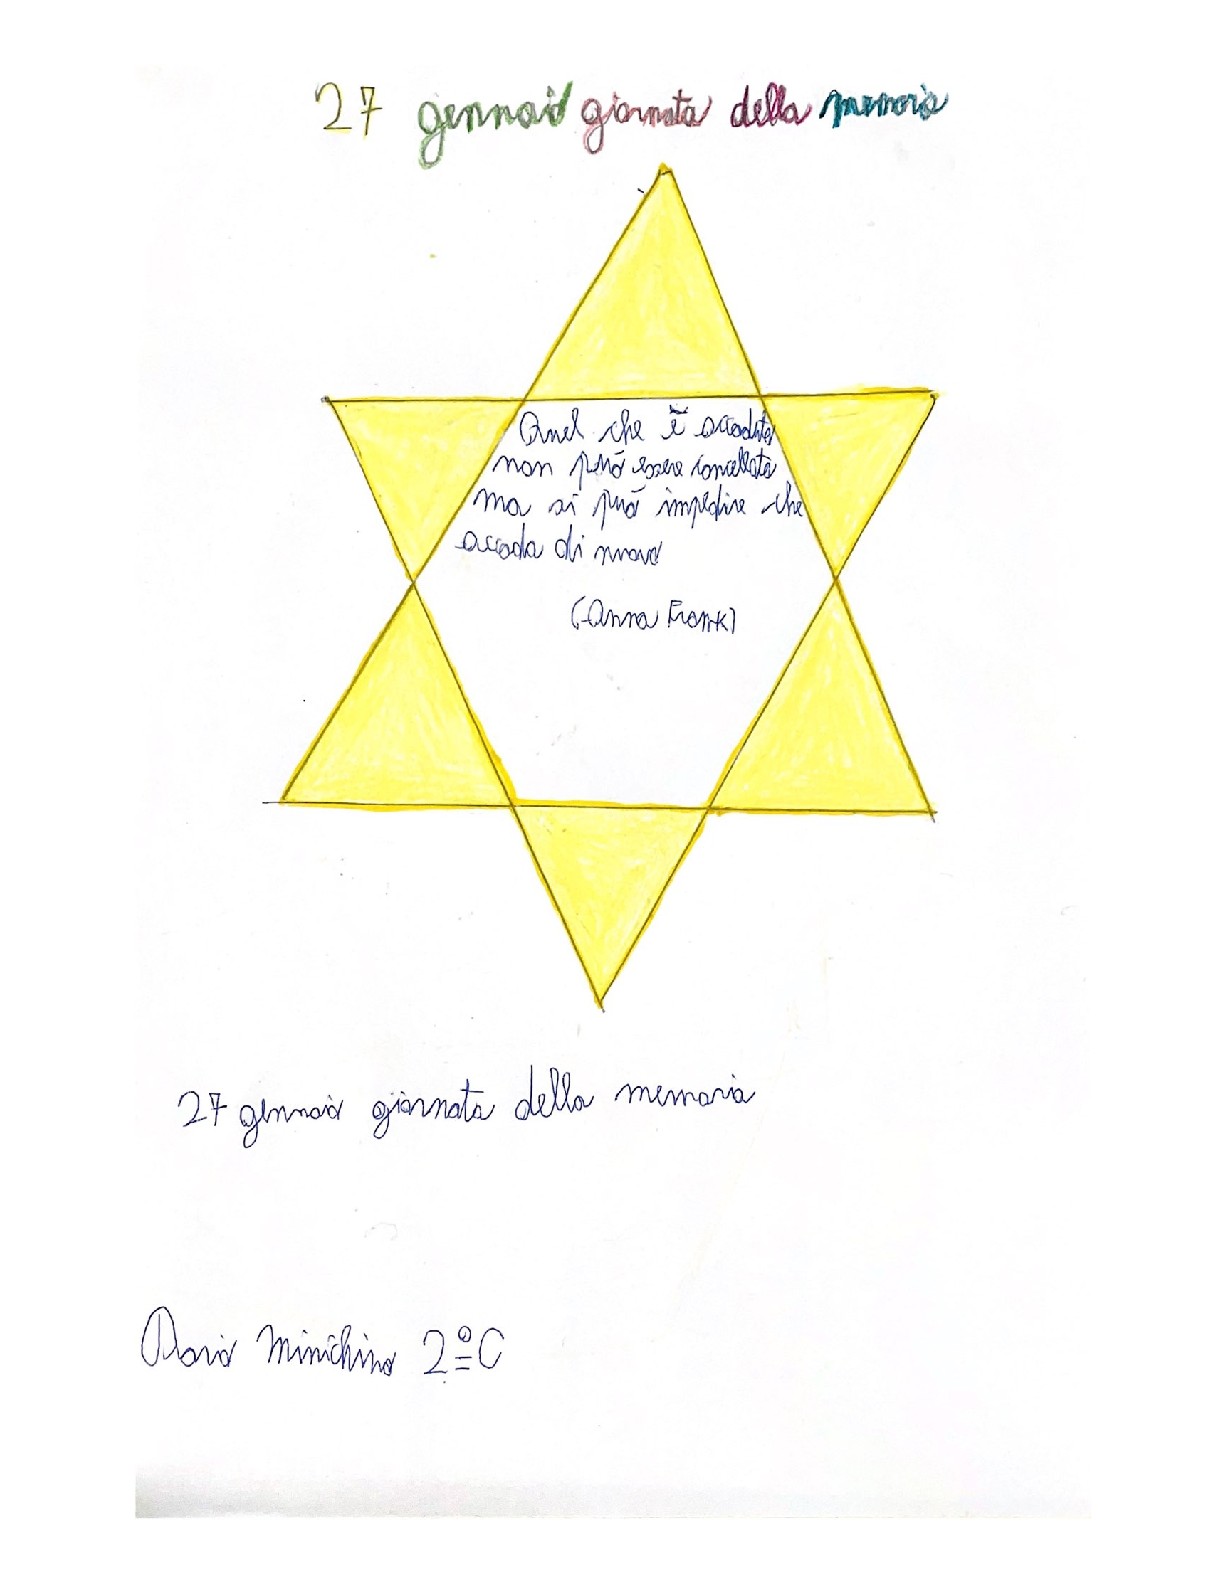 27 gennaio giornata della memoria
Quel che è accaduto
non può essere cancellato
ma si può impedire che
accada di nuovo
(Anna Frank)
27 gennaio giornata della memoria
Minichino 2ºC